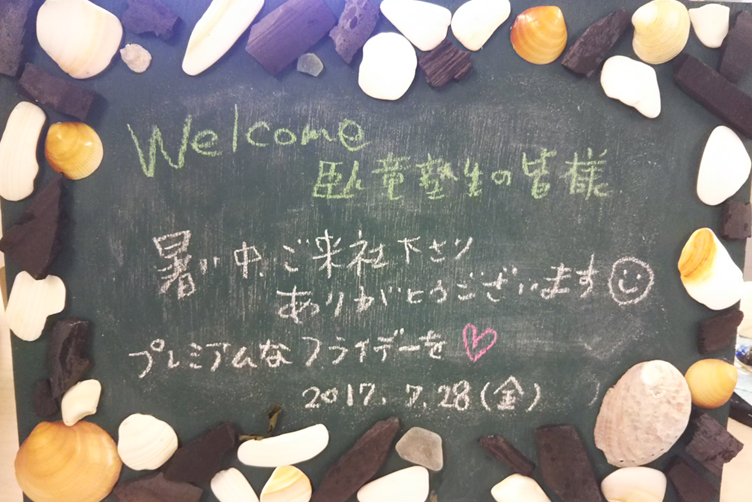 Welcome
臥竜塾生の皆様
暑い中、ご来社下さり
ありがとうございます
プレミアムなフライデーを
2017.7.28(金)